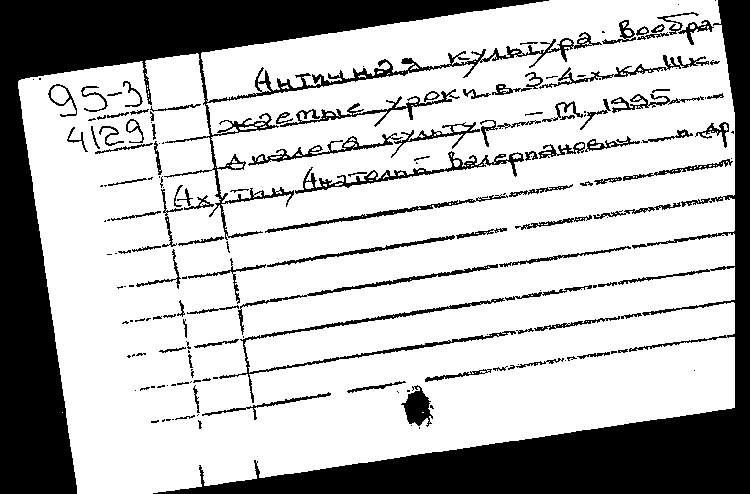 95-3
4129
Античная культура: Вообра-
жаемые уроки в 3-4-х кл. Шк.
диалога культур. - М, 1995
Ахутин, Анатолий Валерианович и др.